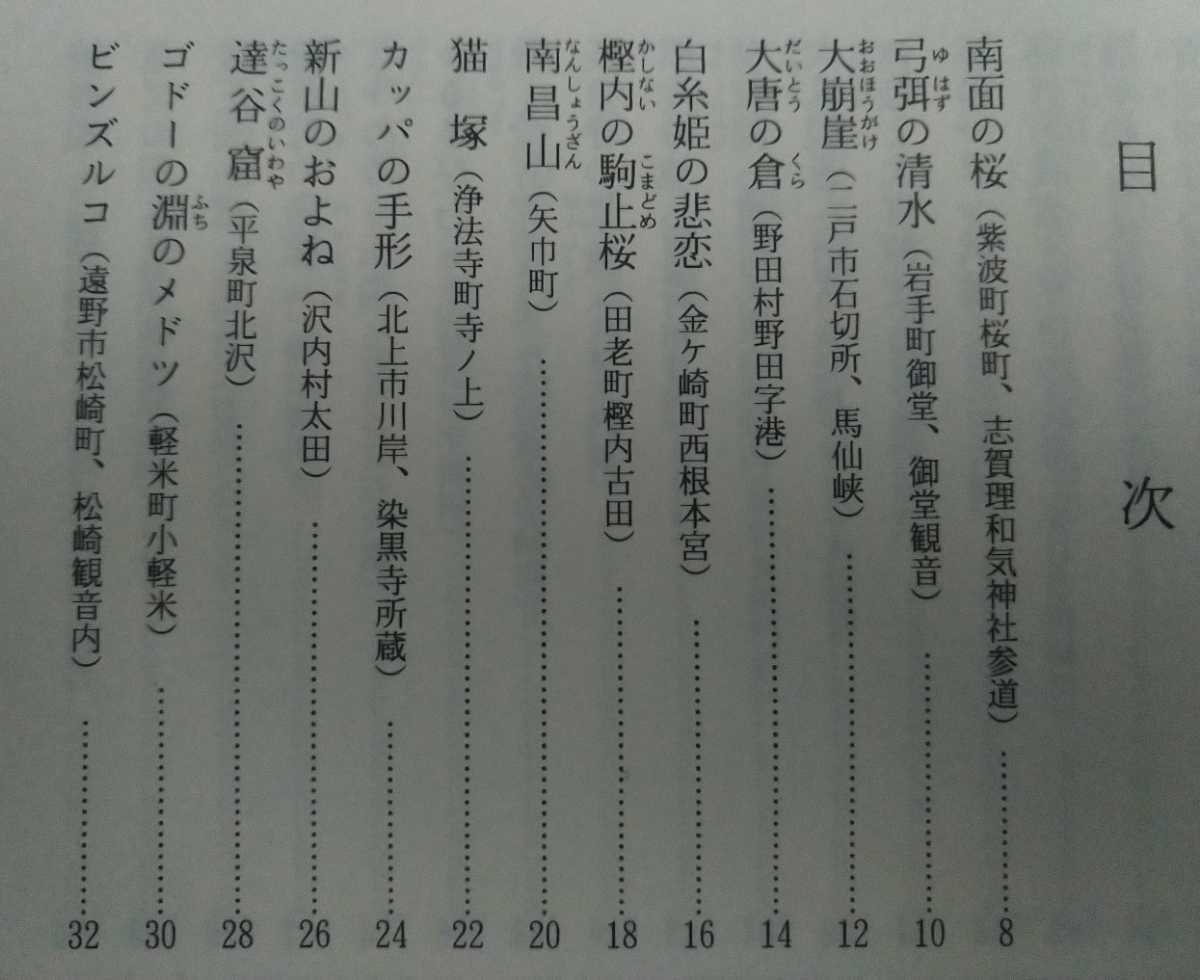 目次
南面の桜（紫波町桜町、志賀理和気神社参道）……………8
弓弭の清水（岩手町御堂、御堂観音）……………10
大崩崖（二戸市石切所、馬仙峡）……………12
大唐の倉（野田村野田字港）……………14
白糸姫の悲恋（金ケ崎町西根本宮）……………16
樫内の駒止桜（田老町樫内古田）……………18
南昌山（矢巾町）……………20
猫塚（浄法寺町寺ノ上）……………22
カッパの手形（北上市川岸、染黒寺所蔵）……………24
新山のおよね（沢内村太田）……………26
達谷窟（平泉町北沢）……………28
ゴドーの淵のメドツ（軽米町小軽米）……………30
ビンズルコ（遠野市松崎町、松崎観音内）……………32